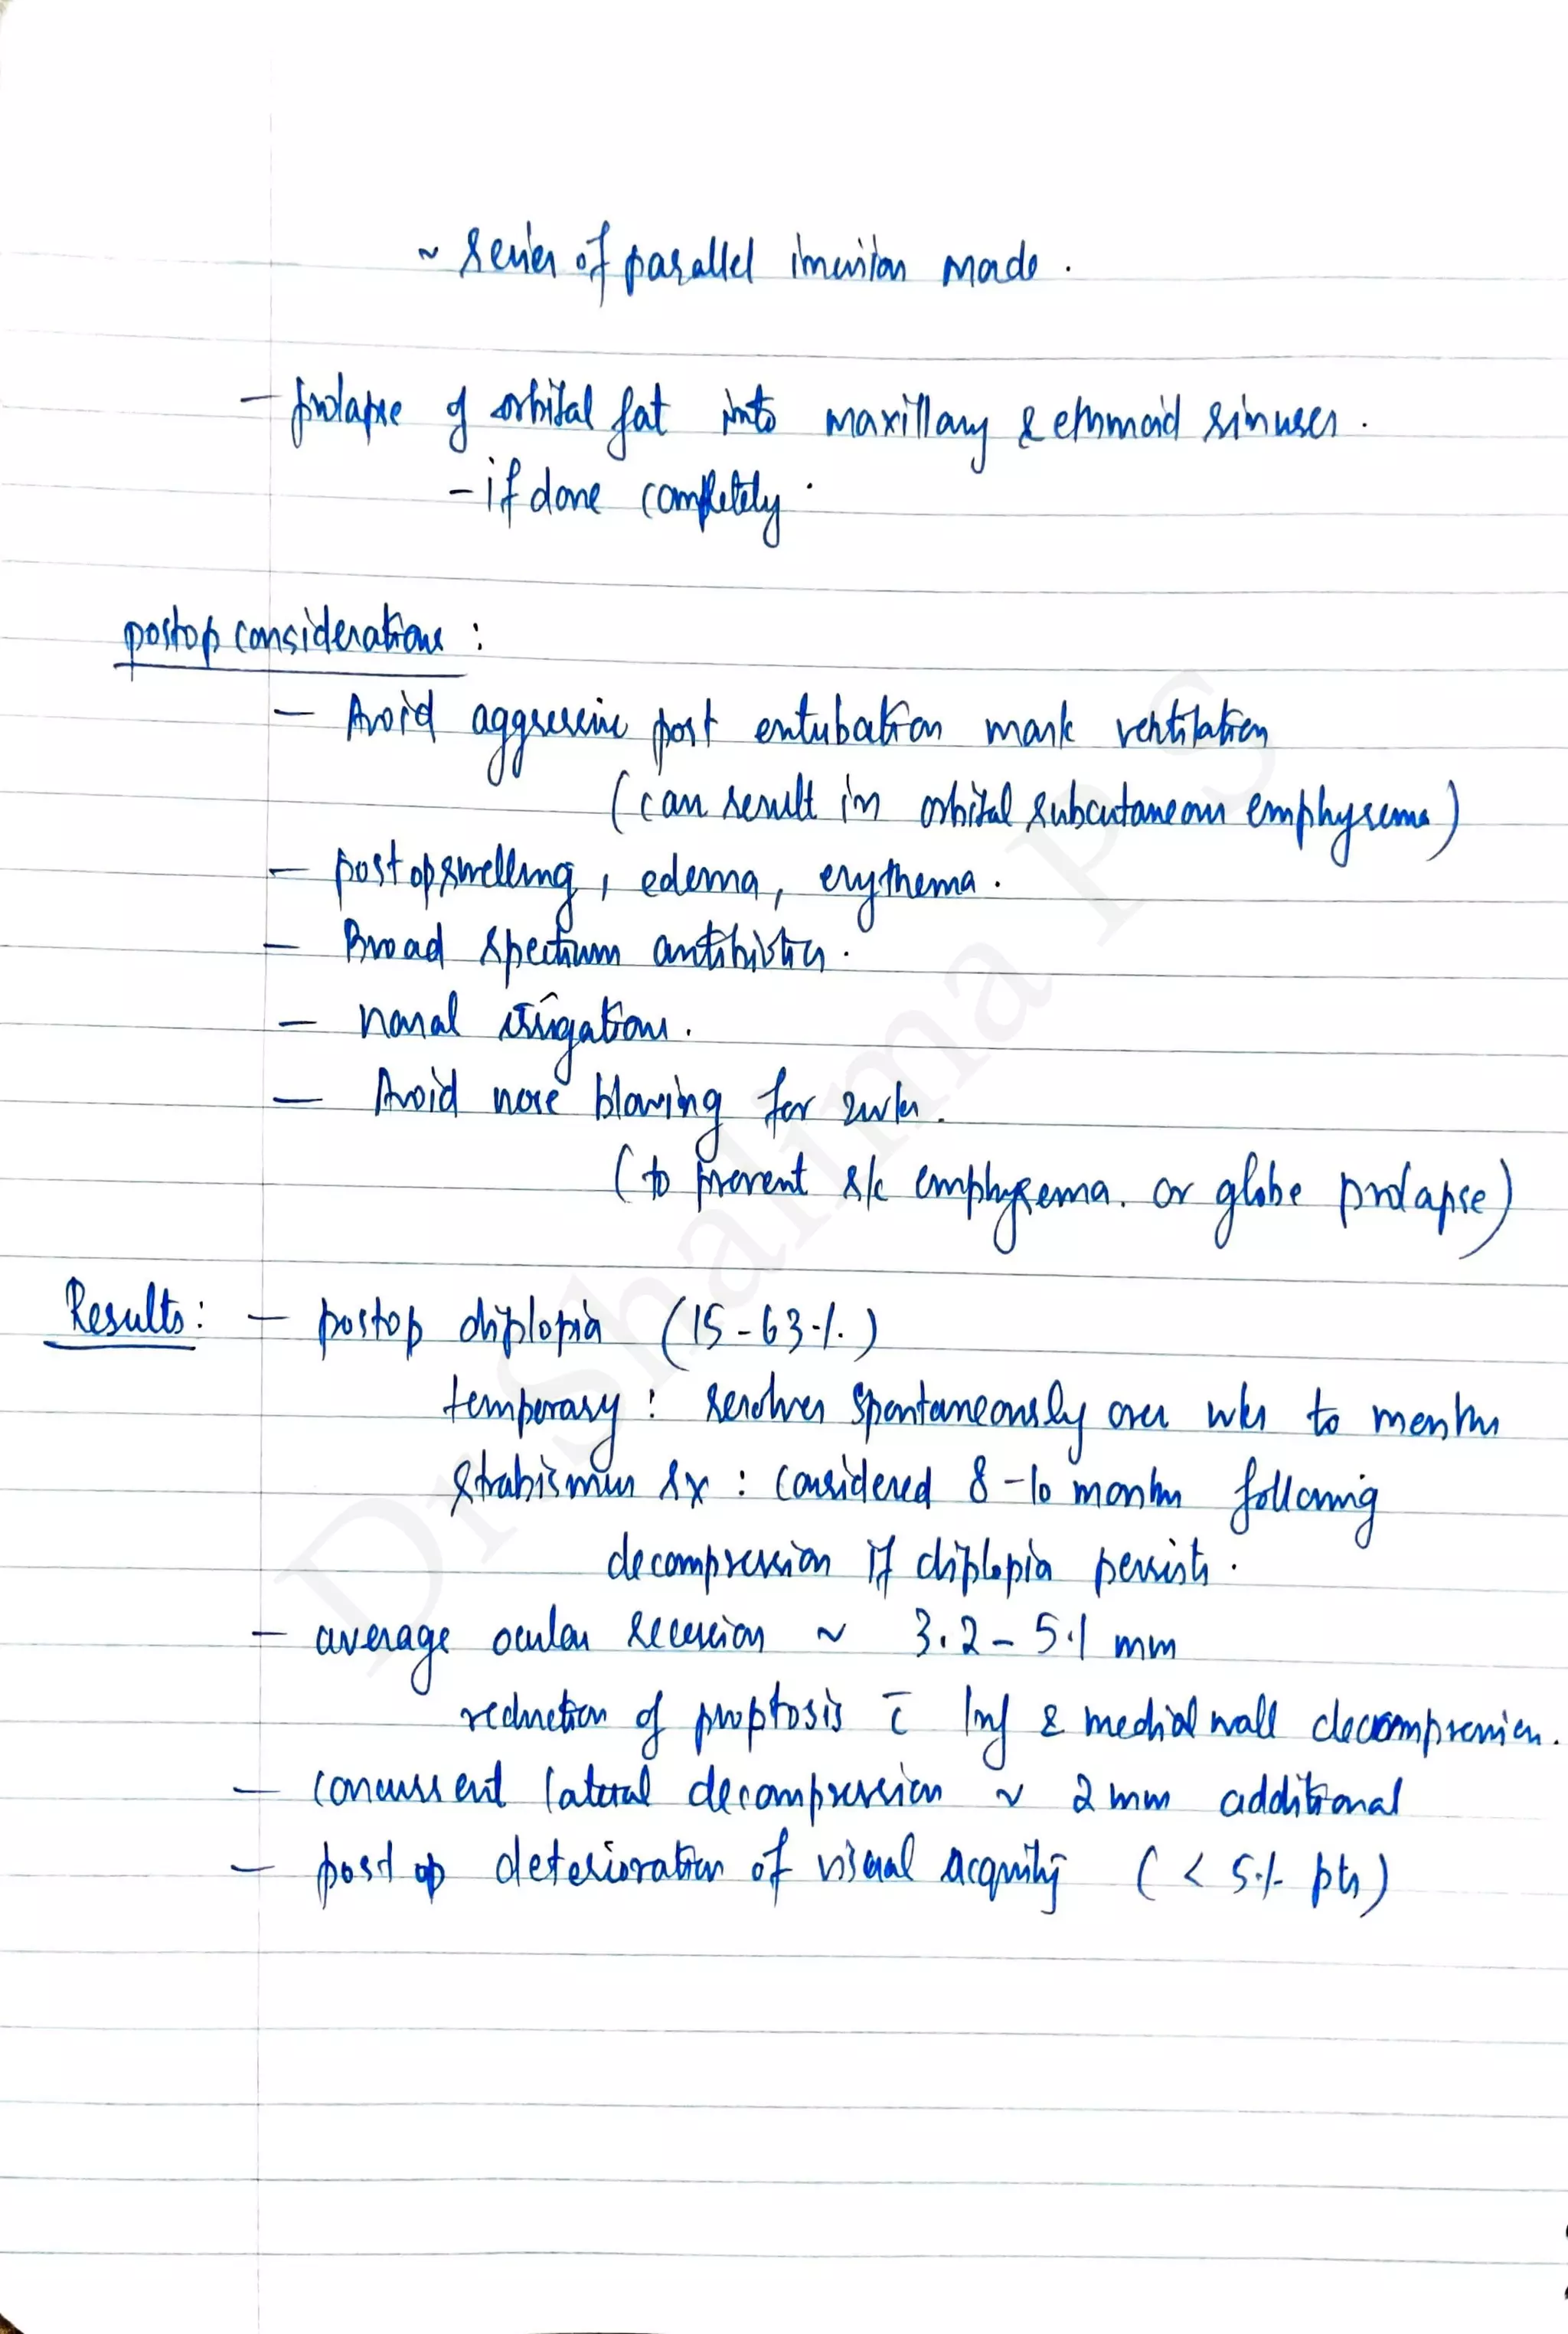 ~ series of parallel incision made.
- prolapse of orbital fat into maxillary & ethmoid sinuses.
- if done completely.
postop considerations :
- Avoid aggressive post entubation mask ventilation
(can result in orbital subcutaneous emphysema)
- post op swelling, edema, erythema.
- Broad spectrum antibiotics.
- nasal irrigations.
- Avoid nose blowing for 2wks.
(to prevent s/c emphysema. or globe prolapse)
Results: - postop diplopia (15-63%)
temporary : resolves spontaneously over wks to months
strabismus sx : considered 8-10 months following
decompression if diplopia persists.
- average ocular recession ~ 3.2 - 5.1 mm
reduction of proptosis c̄ Inf & medial wall decompression.
- concurrent lateral decompression ~ 2 mm additional
- post op deterioration of visual acquity (< 5% pts)
Dr Shalima P S